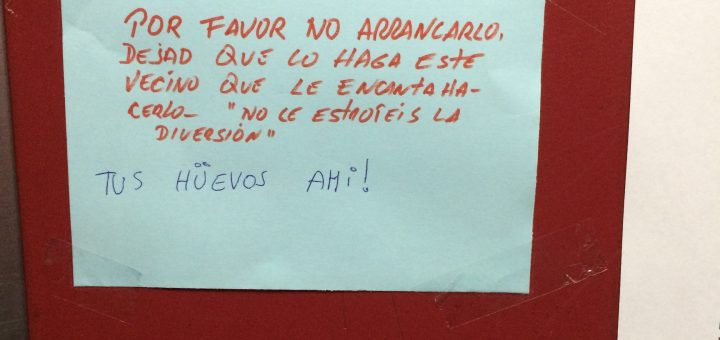 POR FAVOR NO ARRANCARLO,
DEJAD QUE LO HAGA ESTE
VECINO QUE LE ENCANTA HA-
CERLO- "NO LE ESTROPEIS LA
DIVERSIÓN"
TUS HÜEVOS AMi!